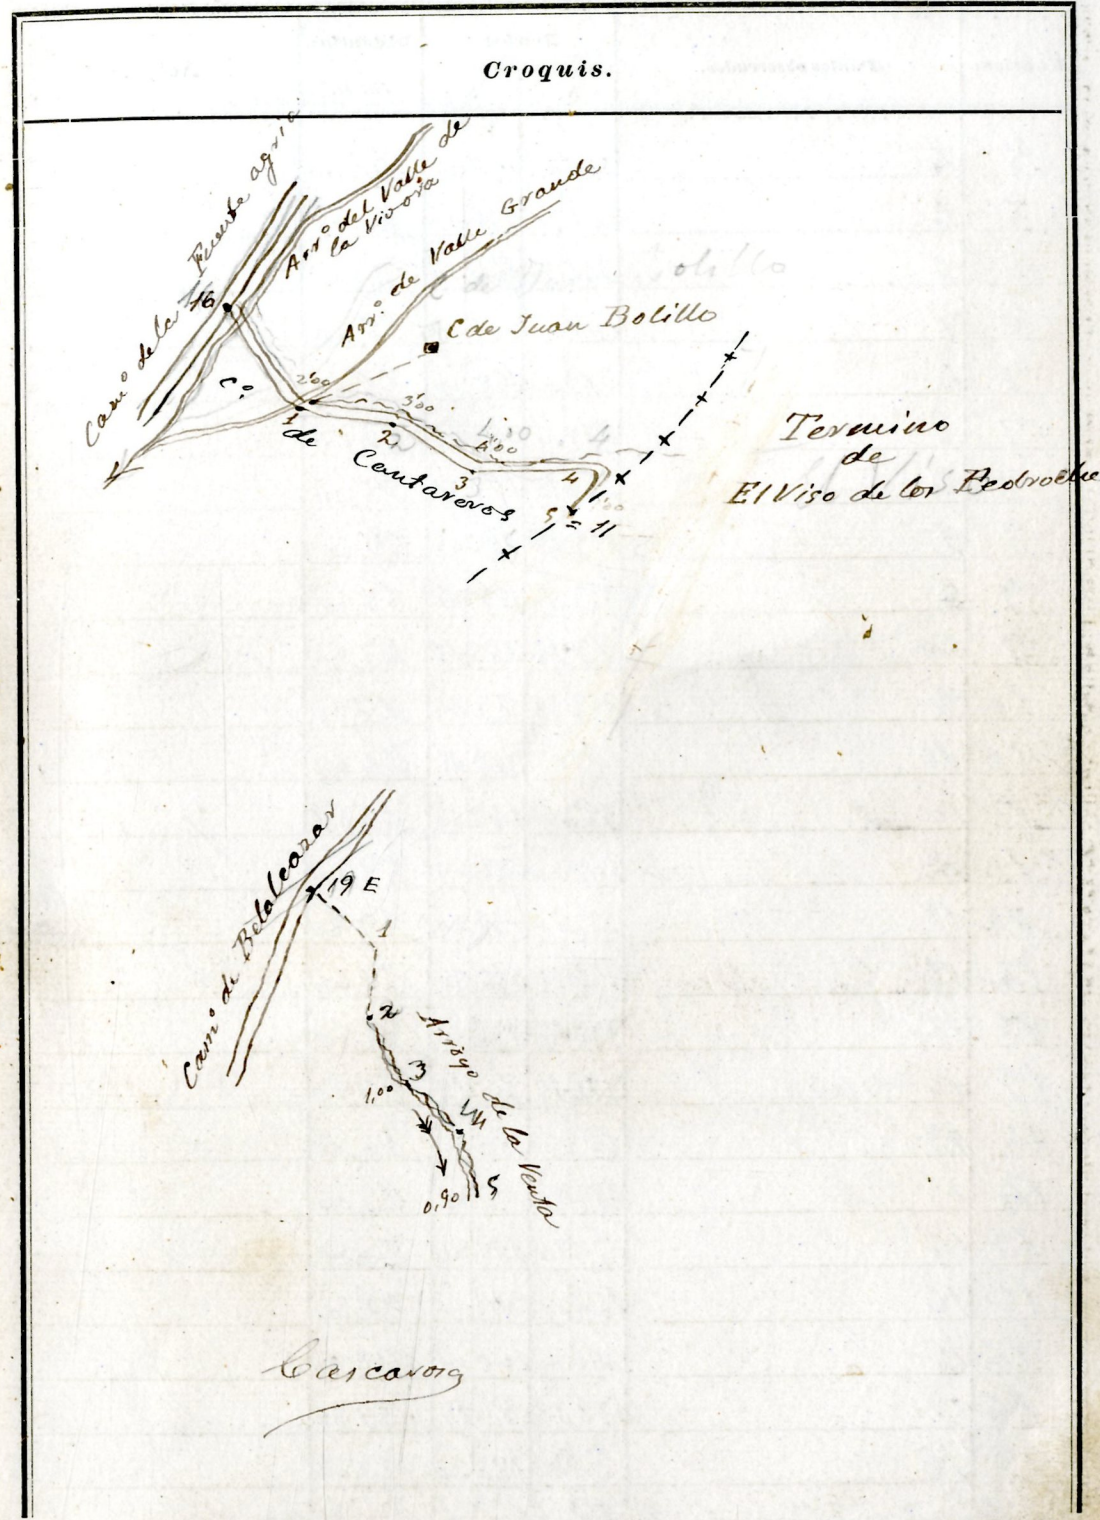 Croquis.
Camº de la Fuente agria
Arrº del Valle de
la Vivora
Arrº de Valle Grande
16
C de Juan Bolillo
Cº
de
Cantareros
2'00
3'00
4'00
1
2
3
4
5 = 11
Termino
de
El Viso de los Pedroche
Camº de Belalcazar
19 E
1
2
3
5
1,00
0,90
Arroyo de la Venta